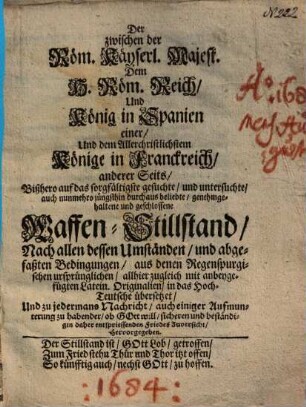 No 222
Der
zwischen der
Röm. Käyserl. Majest.
Dem
H. Röm. Reich/
Und
König in Spanien
einer/
Und dem Allerchristlichstem
Könige in Franckreich/
anderer Seits/
Bißhero auf das sorgfältigste gesuchte/ und untersuchte/
auch nunmehro jüngsthin durchaus beliebte/ genehmge-
haltene und geschlossene
Waffen-Stillstand/
Nach allen dessen Umständen/ und abge-
faßten Bedingungen/ aus denen Regenspurgi-
schen ursprünglichen/ allhier zugleich mit anbeyge-
fügten Latein. Originalien/ in das Hoch-
Teutsche übersetzet/
Und zu jedermans Nachricht/ auch einiger Aufmun-
terung zu habender/ ob GOtt will/ sicheren und beständi-
gen daher entspriessenden Friedes Zuversicht/
Hervorgegeben.
Der Stillstand ist/ GOtt Lob/ getroffen/
Zum Fried stehn Thür und Thor itzt offen/
So künfftig auch/ nechst GOtt/ zu hoffen.
1684.